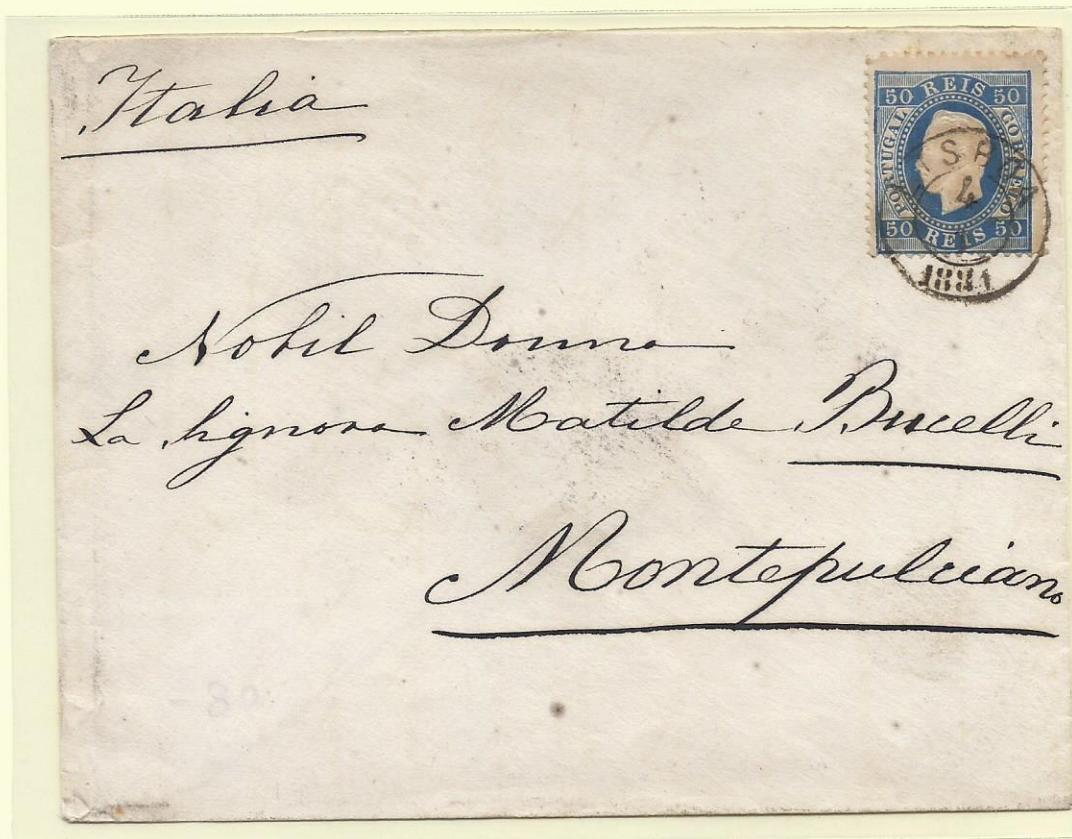 Italia
50 REIS 50
PORTUGAL
CORREIO
50 REIS 50
4
1
1881
Nobil Donna
La Signora Matilde Bucelli
Montepulciano